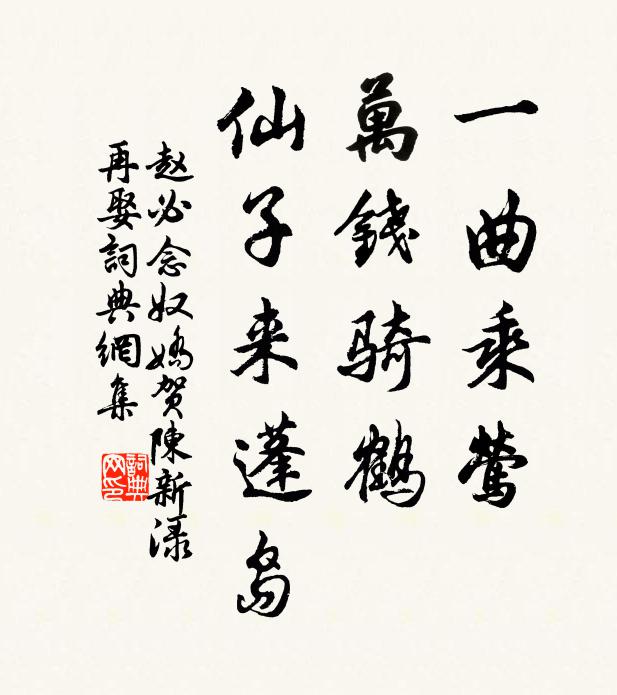 一曲乘鶯
萬錢騎鶴
仙子来蓬島
赵必念奴嬌賀陳新渌
再娶詞典網集
詞典网印